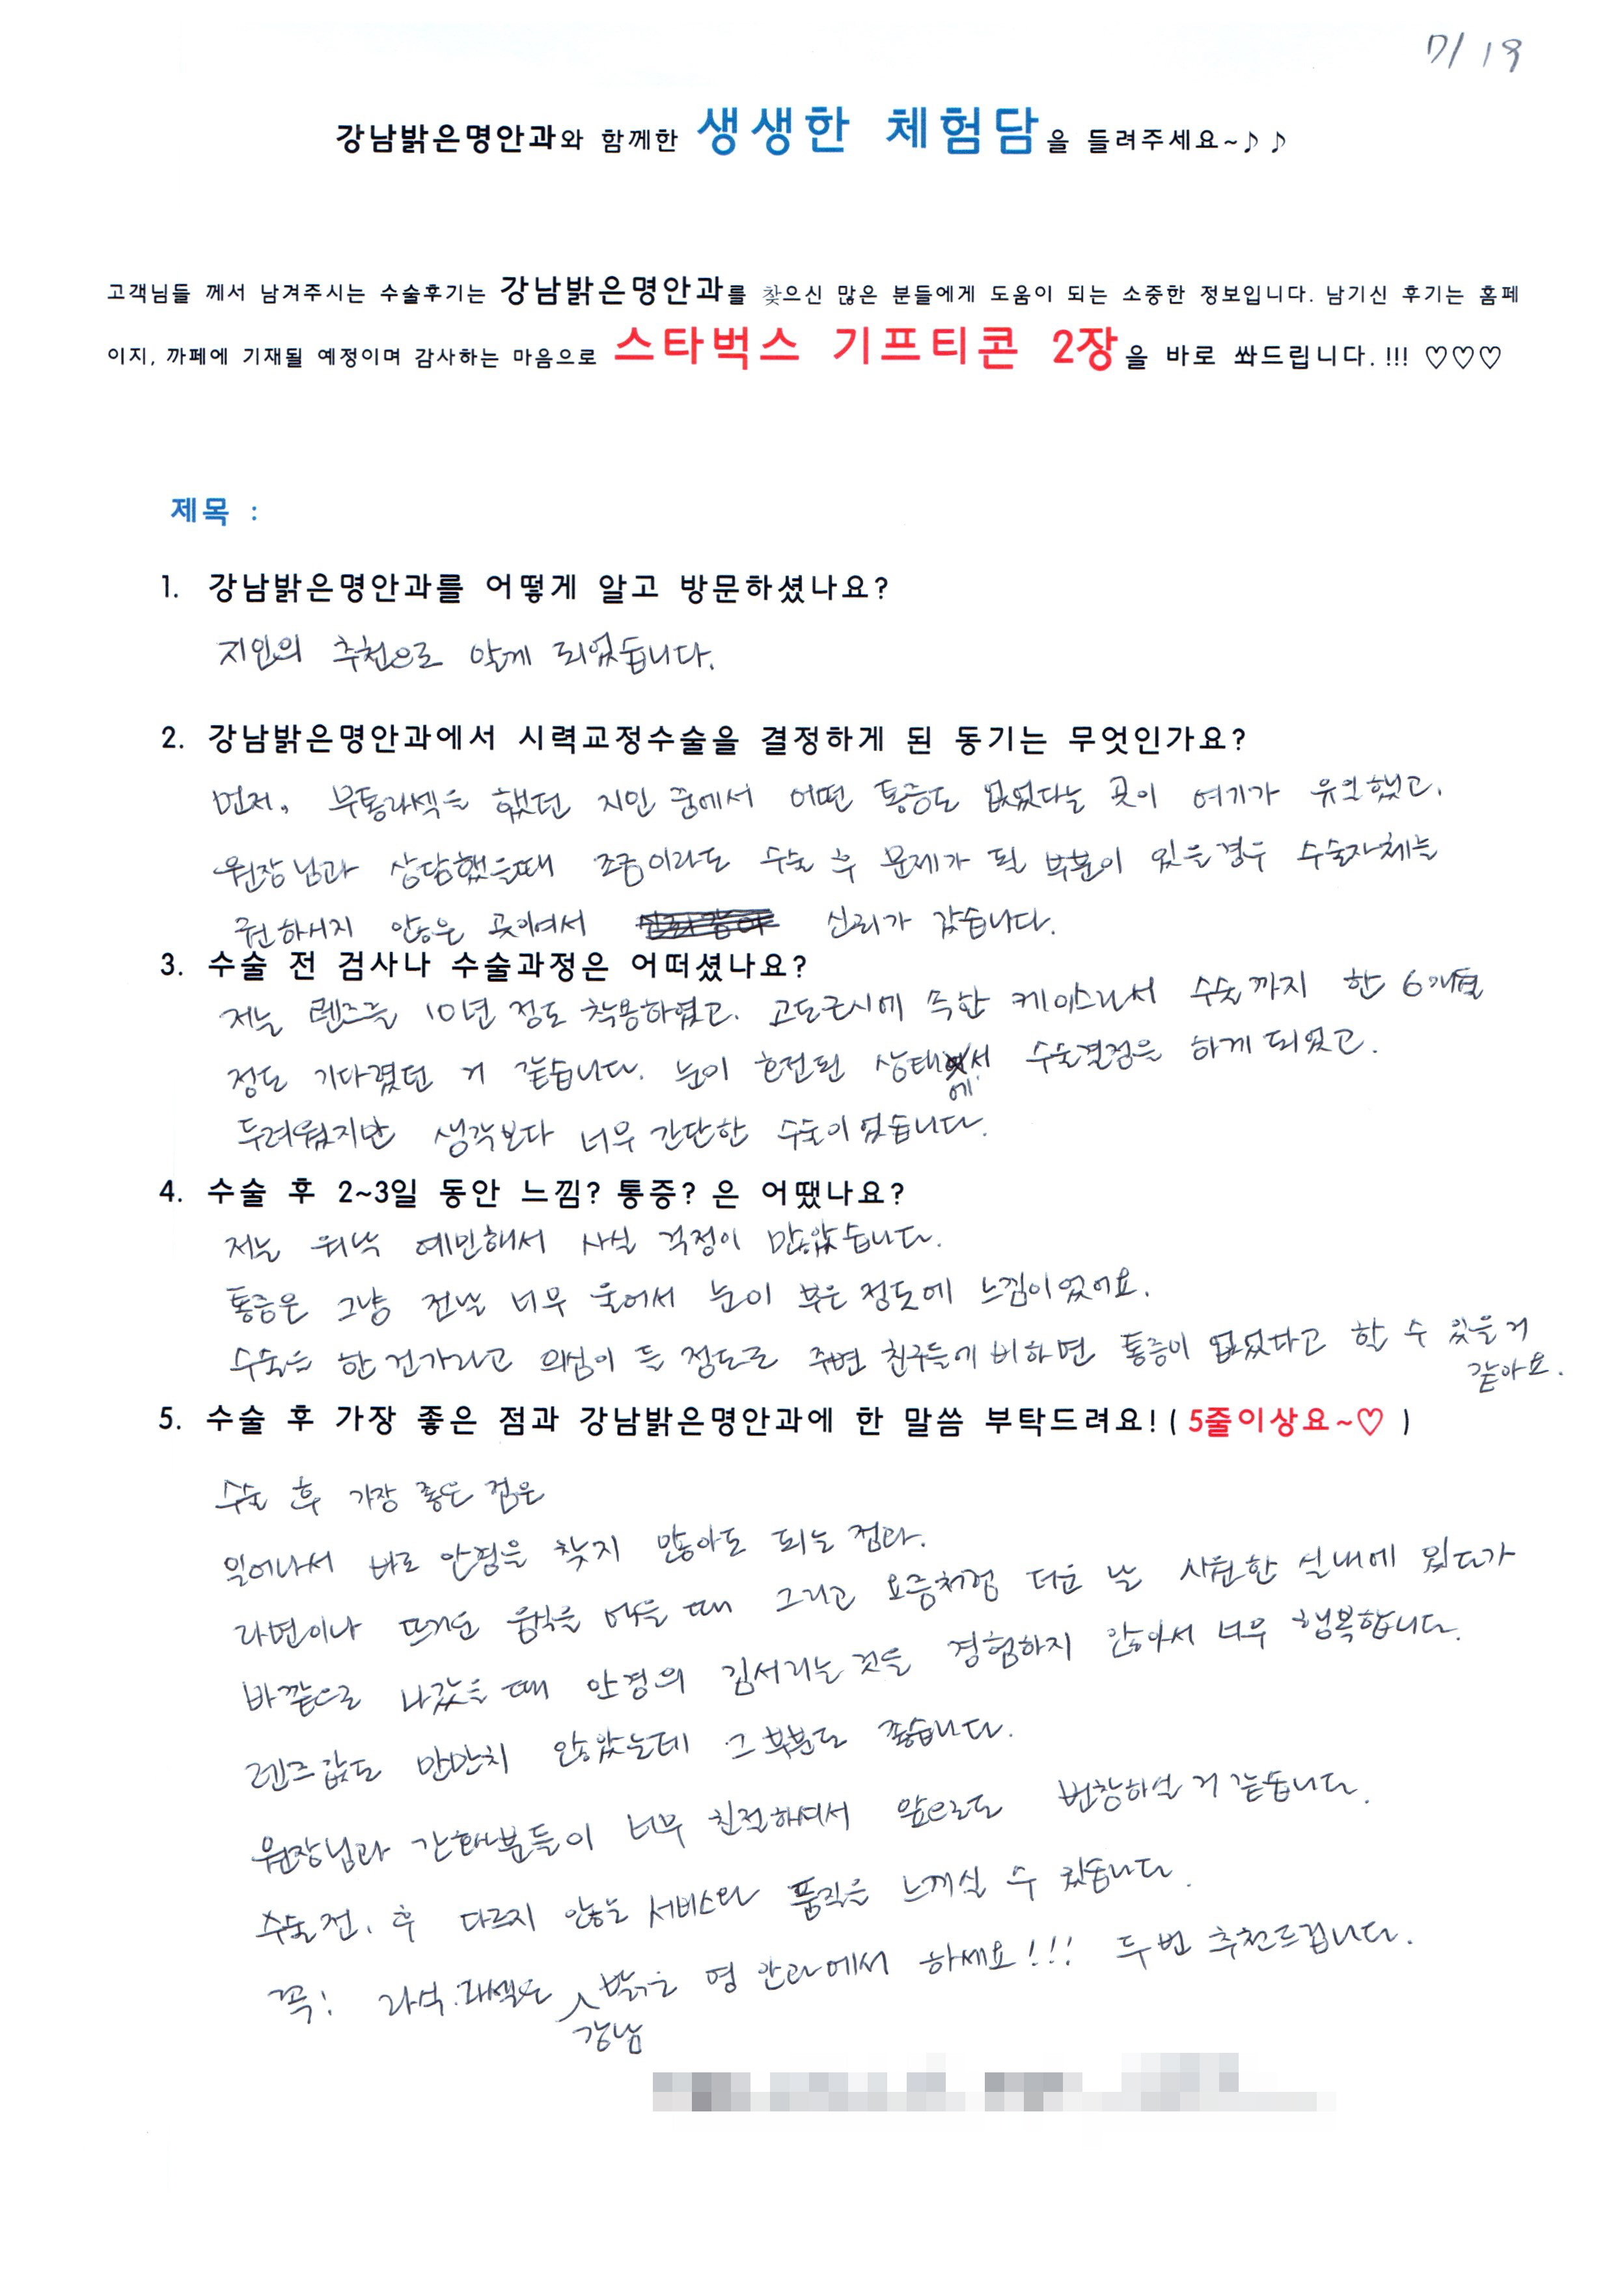 7/19
강남밝은명안과와 함께한 생생한 체험담을 들려주세요~♪♪
고객님들 께서 남겨주시는 수술후기는 강남밝은명안과를 찾으신 많은 분들에게 도움이 되는 소중한 정보입니다. 남기신 후기는 홈페
이지, 까페에 기재될 예정이며 감사하는 마음으로 스타벅스 기프티콘 2장을 바로 쏴드립니다.!!! ♡♡♡
제목 :
1. 강남밝은명안과를 어떻게 알고 방문하셨나요?
지인의 추천으로 알게 되었습니다.
2. 강남밝은명안과에서 시력교정수술을 결정하게 된 동기는 무엇인가요?
먼저, 무통라섹을 했던 지인 중에서 어떤 통증도 없었다는 곳이 여기가 유일했고,
원장님과 상담했을때 조금이라도 수술 후 문제가 될 부분이 있을경우 수술자체를
권하시지 않은 곳이여서 신뢰가 갔습니다.
3. 수술 전 검사나 수술과정은 어떠셨나요?
저는 렌즈를 10년 정도 착용하였고, 고도근시에 속한 케이스라서 수술까지 한 6개월
정도 기다렸던 거 같습니다. 눈이 호전된 상태에서 수술결정을 하게 되었고.
두려웠지만 생각보다 너무 간단한 수술이었습니다.
4. 수술 후 2~3일 동안 느낌? 통증? 은 어땠나요?
저는 워낙 예민해서 사실 걱정이 많았습니다.
통증은 그냥 전날 너무 울어서 눈이 부은 정도에 느낌이었어요.
수술을 한건가라고 의심이 들 정도로 주변 친구들에 비하면 통증이 없었다고 할 수 있을거
같아요.
5. 수술 후 가장 좋은 점과 강남밝은명안과에 한 말씀 부탁드려요!( 5줄이상요~♡ )
수술 후 가장 좋은 점은
일어나서 바로 안경을 찾지 않아도 되는 점과.
라면이나 뜨거운 음식을 먹을 때 그리고 요즘처럼 더운 날 시원한 실내에 있다가
바깥으로 나갔을 때 안경의 김서리는것을 경험하지 않아서 너무 행복합니다.
렌즈값도 만만치 않았는데 그 부분도 좋습니다.
원장님과 간호사분들이 너무 친절하셔서 앞으로도 번창하실 거 같습니다.
수술전, 후 다르지 않는 서비스와 품격을 느끼실 수 있습니다.
꼭! 라식.라섹은 강남 밝은 명 안과에서 하세요!!! 두번 추천드립니다.